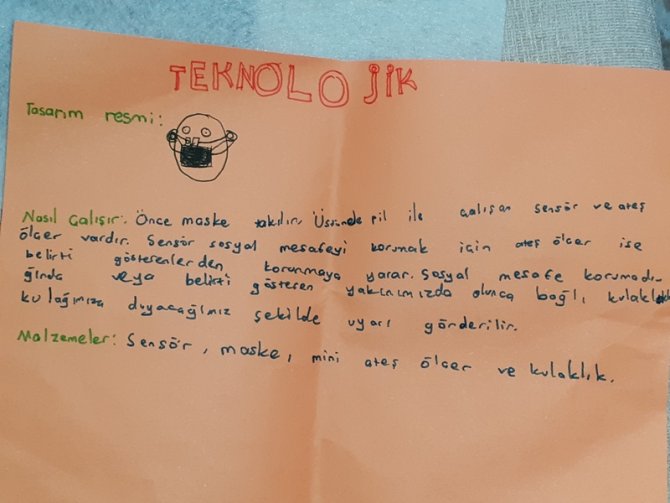 TEKNOLOJİK
Tasarım resmi:
Nasıl Çalışır: Önce maske takılır. Üstünde pil ile çalışan sensör ve ateş
ölçer vardır. Sensör sosyal mesafeyi korumak için ateş ölçer ise
belirti gösterenlerden korunmaya yarar. Sosyal mesafe korumadı-
ğında veya belirti gösteren yakınımızda olunca bağlı kulaklık
kulağımıza duyacağımız şekilde uyarı gönderilir.
Malzemeler: Sensör, maske, mini ateş ölçer ve kulaklık.